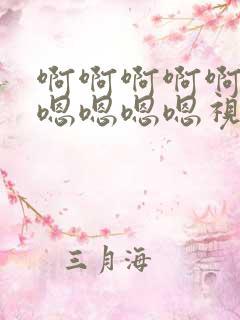 啊啊啊啊啊
嗯嗯嗯嗯視
三月海